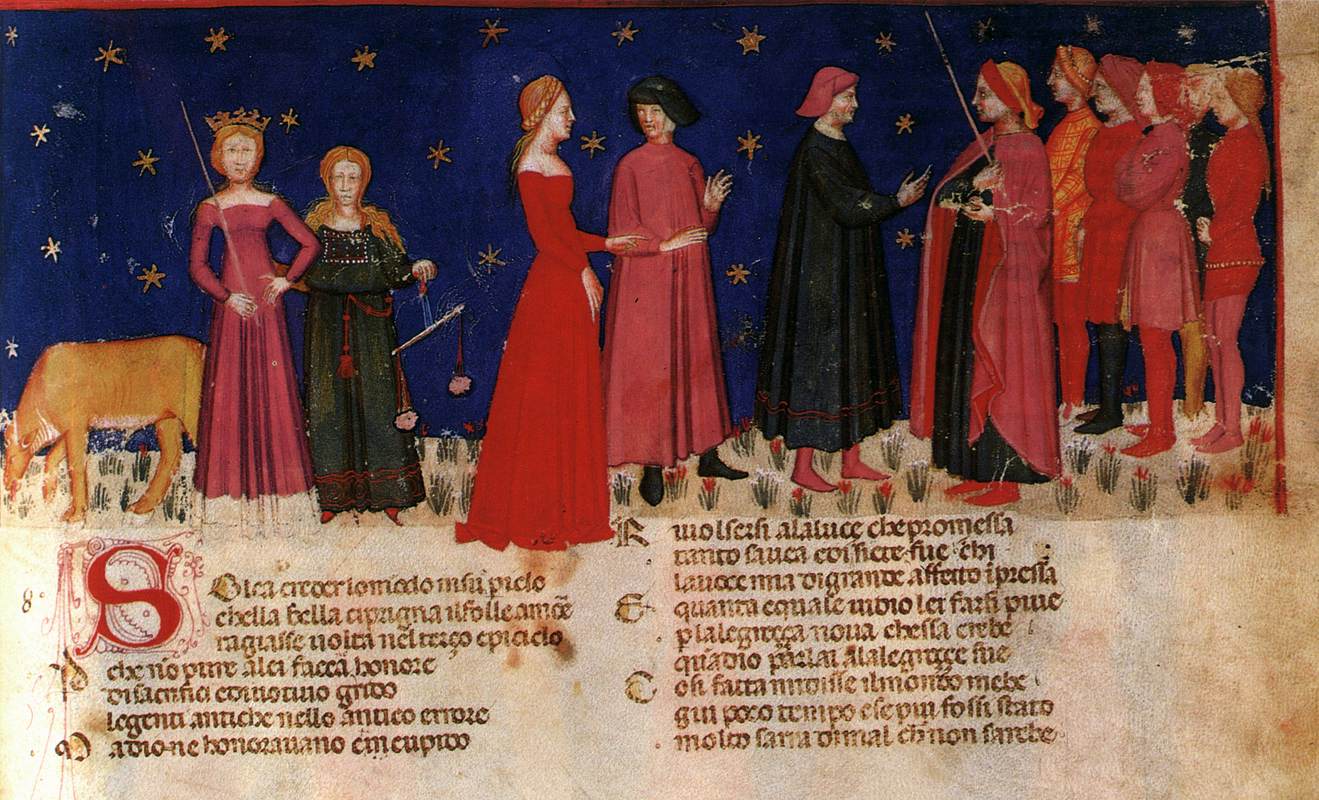 8
SOlea creder lo mondo insu piclo
chella bella ciprigna il folle amore
ragiasse uolta nel terço epiciclo
che nõ pure alei faccã honore
di sacrifici e diuotiuo grido
legenti antiche nello antico errore
adione honorauano cupido
R iuolsersi alaluce chepromessa
tanto sauea edi siete fue chi
lauoce mia digrande affetto ĩpressa
E quanta equale uidio lei farsi piue
p lalegreçça noua chessa crebe
quãdio parlai alalegreçe sue
C osi fatta midisse ilmondo mebe
giu poco tempo ese piu fossi stato
molto sara dimal ch non sarebe